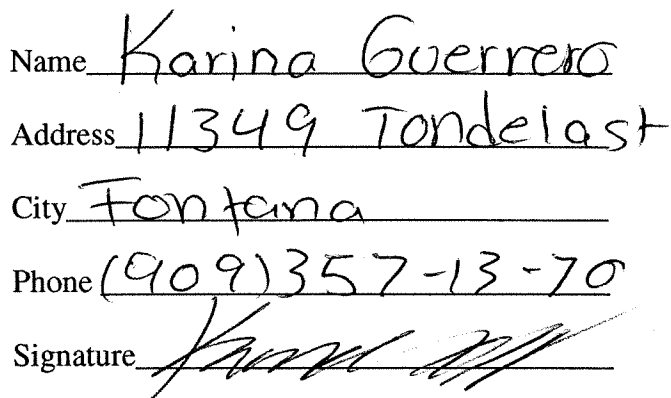 Name Karina Guerrero
Address 11349 Tondelast
City Fontana
Phone (909)357-13-70
Signature